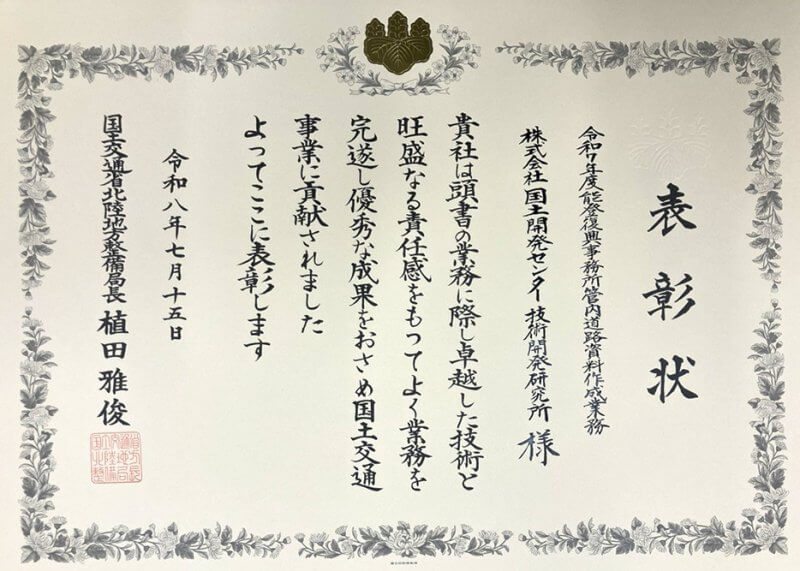 表彰状
令和7年度能登復興事務所管内道路資料作成業務
株式会社国土開発センター 技術開発研究所 様
貴社は頭書の業務に際し卓越した技術と
旺盛なる責任感をもつてよく業務を
完遂し優秀な成果をおさめ国土交通
事業に貢献されました
よってここに表彰します
令和八年七月十五日
国土交通省北陸地方整備局長 植田雅俊